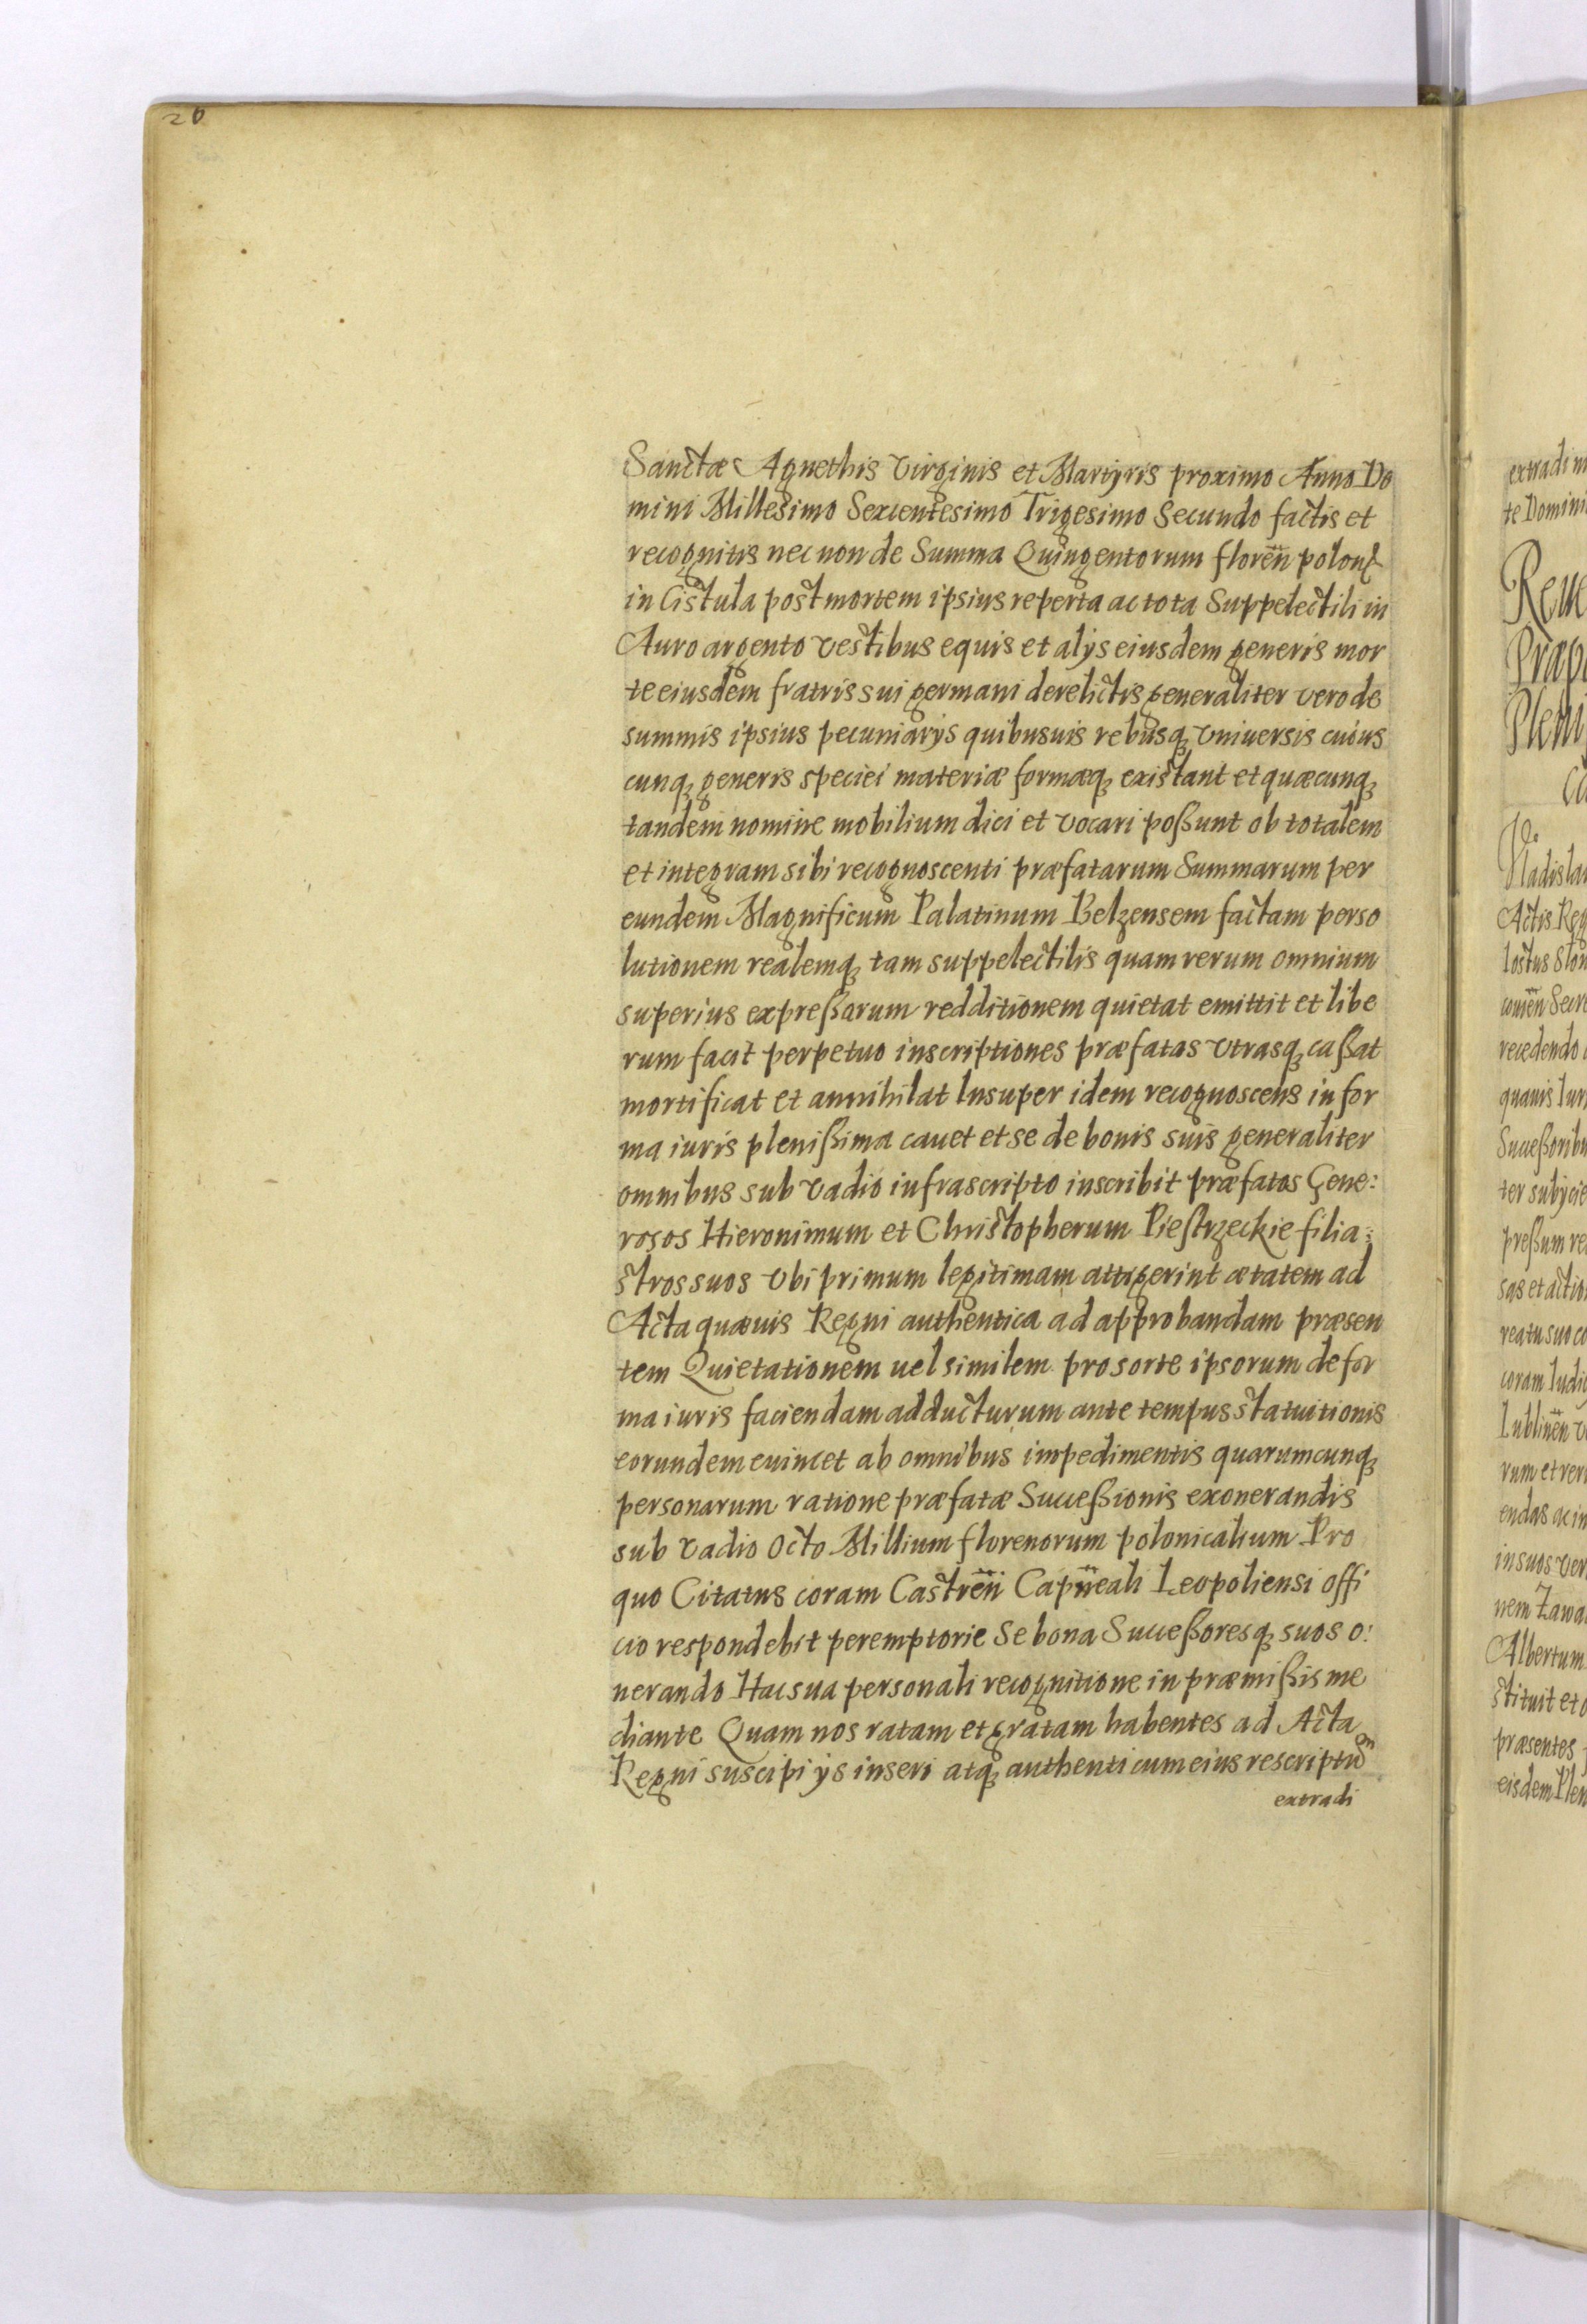 26
Sanctæ Agnethis Virginis et Martyris proximo Anno Do
mini Millesimo Sexcentesimo Trigesimo Secundo factis et
recognitis nec non de Summa Quingentorum floreñ polon
in Cistula post mortem ipsius reperta ac tota Suppelectili in
Auro argento vestibus equis et alys eiusdem generis mor
te eiusdem fratris sui germani derelictis generaliter vero de
summis ipsius pecuniarys quibusuis rebusq vniuersis cuius
cunq generis speciei materiæ formæq existant et quæcunq
tandem nomine mobilium dici et vocari poßunt ob totalem
et integram sibi recognoscenti præfatarum Summarum per
eundem Magnificum Palatinum Belzensem factam perso
lutionem realemq tam suppelectilis quam rerum omnium
superius expreßarum redditionem quietat emittit et libe
rum facit perpetuo inscriptiones præfatas vtrasq caßat
mortificat et annihilat Insuper idem recognoscens in for
ma iuris plenißima cauet et se de bonis suis generaliter
omnibus sub vadio infrascripto inscribit præfatos Gene:
rosos Hieronimum et Christopherum Piestrzeckie filia:
stros suos vbi primum legitimam attigerint ætatem ad
Acta quæuis Regni authentica ad approbandam præsen
tem Quietationem uel similem pro sorte ipsorum de for
ma iuris faciendam adducturum ante tempus statuitionis
eorundem euincet ab omnibus impedimentis quarumcunq
personarum ratione præfatæ Succeßionis exonerandis
sub vadio Octo Millium florenorum polonicalium Pro
quo Citatus coram Castreñ Capñeali Leopoliensi offi
cio respondebit peremptorie Se bona Succeßoresq suos o:
nerando Hac sua personali recognitione in præmißis me
diante Quam nos ratam et gratam habentes ad Acta
Regni suscipi ys inseri atq authenticum eius rescriptum
extradi
extradi
te Domini
Reue
Præp
Pleni
Vladisla
Actis Reg